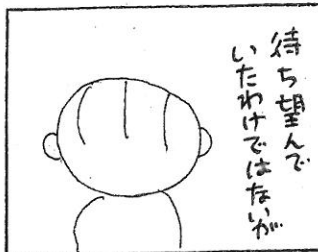 待ち望んで
いたわけではないが